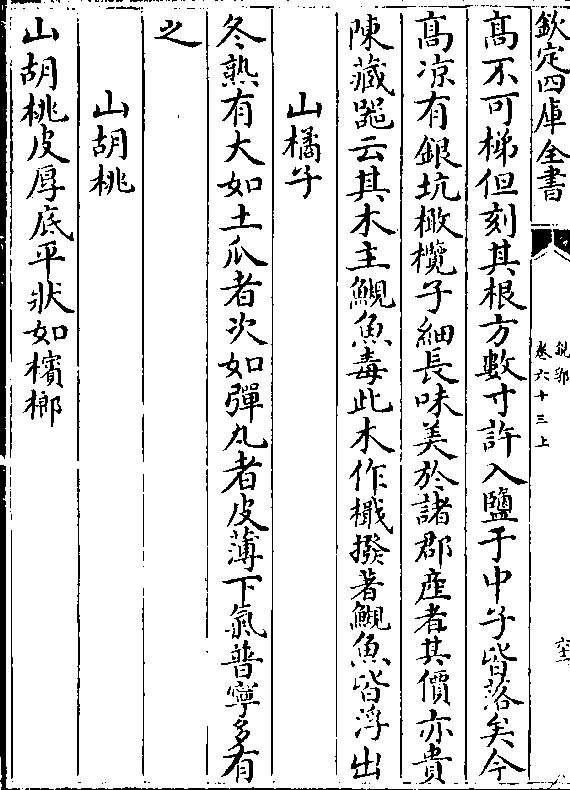 欽定四庫全書
説郛
卷六十三上
高不可梯但刻其根方數寸許入鹽于中子皆落矣今
高凉有銀坑橄欖子細長味美於諸郡産者其價亦貴
陳藏噐云其木主鯢魚毒此木作檝撥著鯢魚皆浮出
山橘子
冬熟有大如土瓜者次如彈丸者皮薄下氣普寧多有
之
山胡桃
山胡桃皮厚底平狀如檳榔